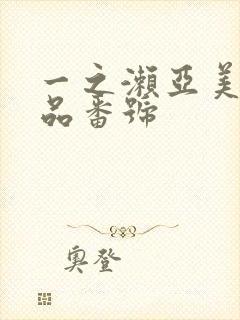 一之瀨亞美
品番號
奧登